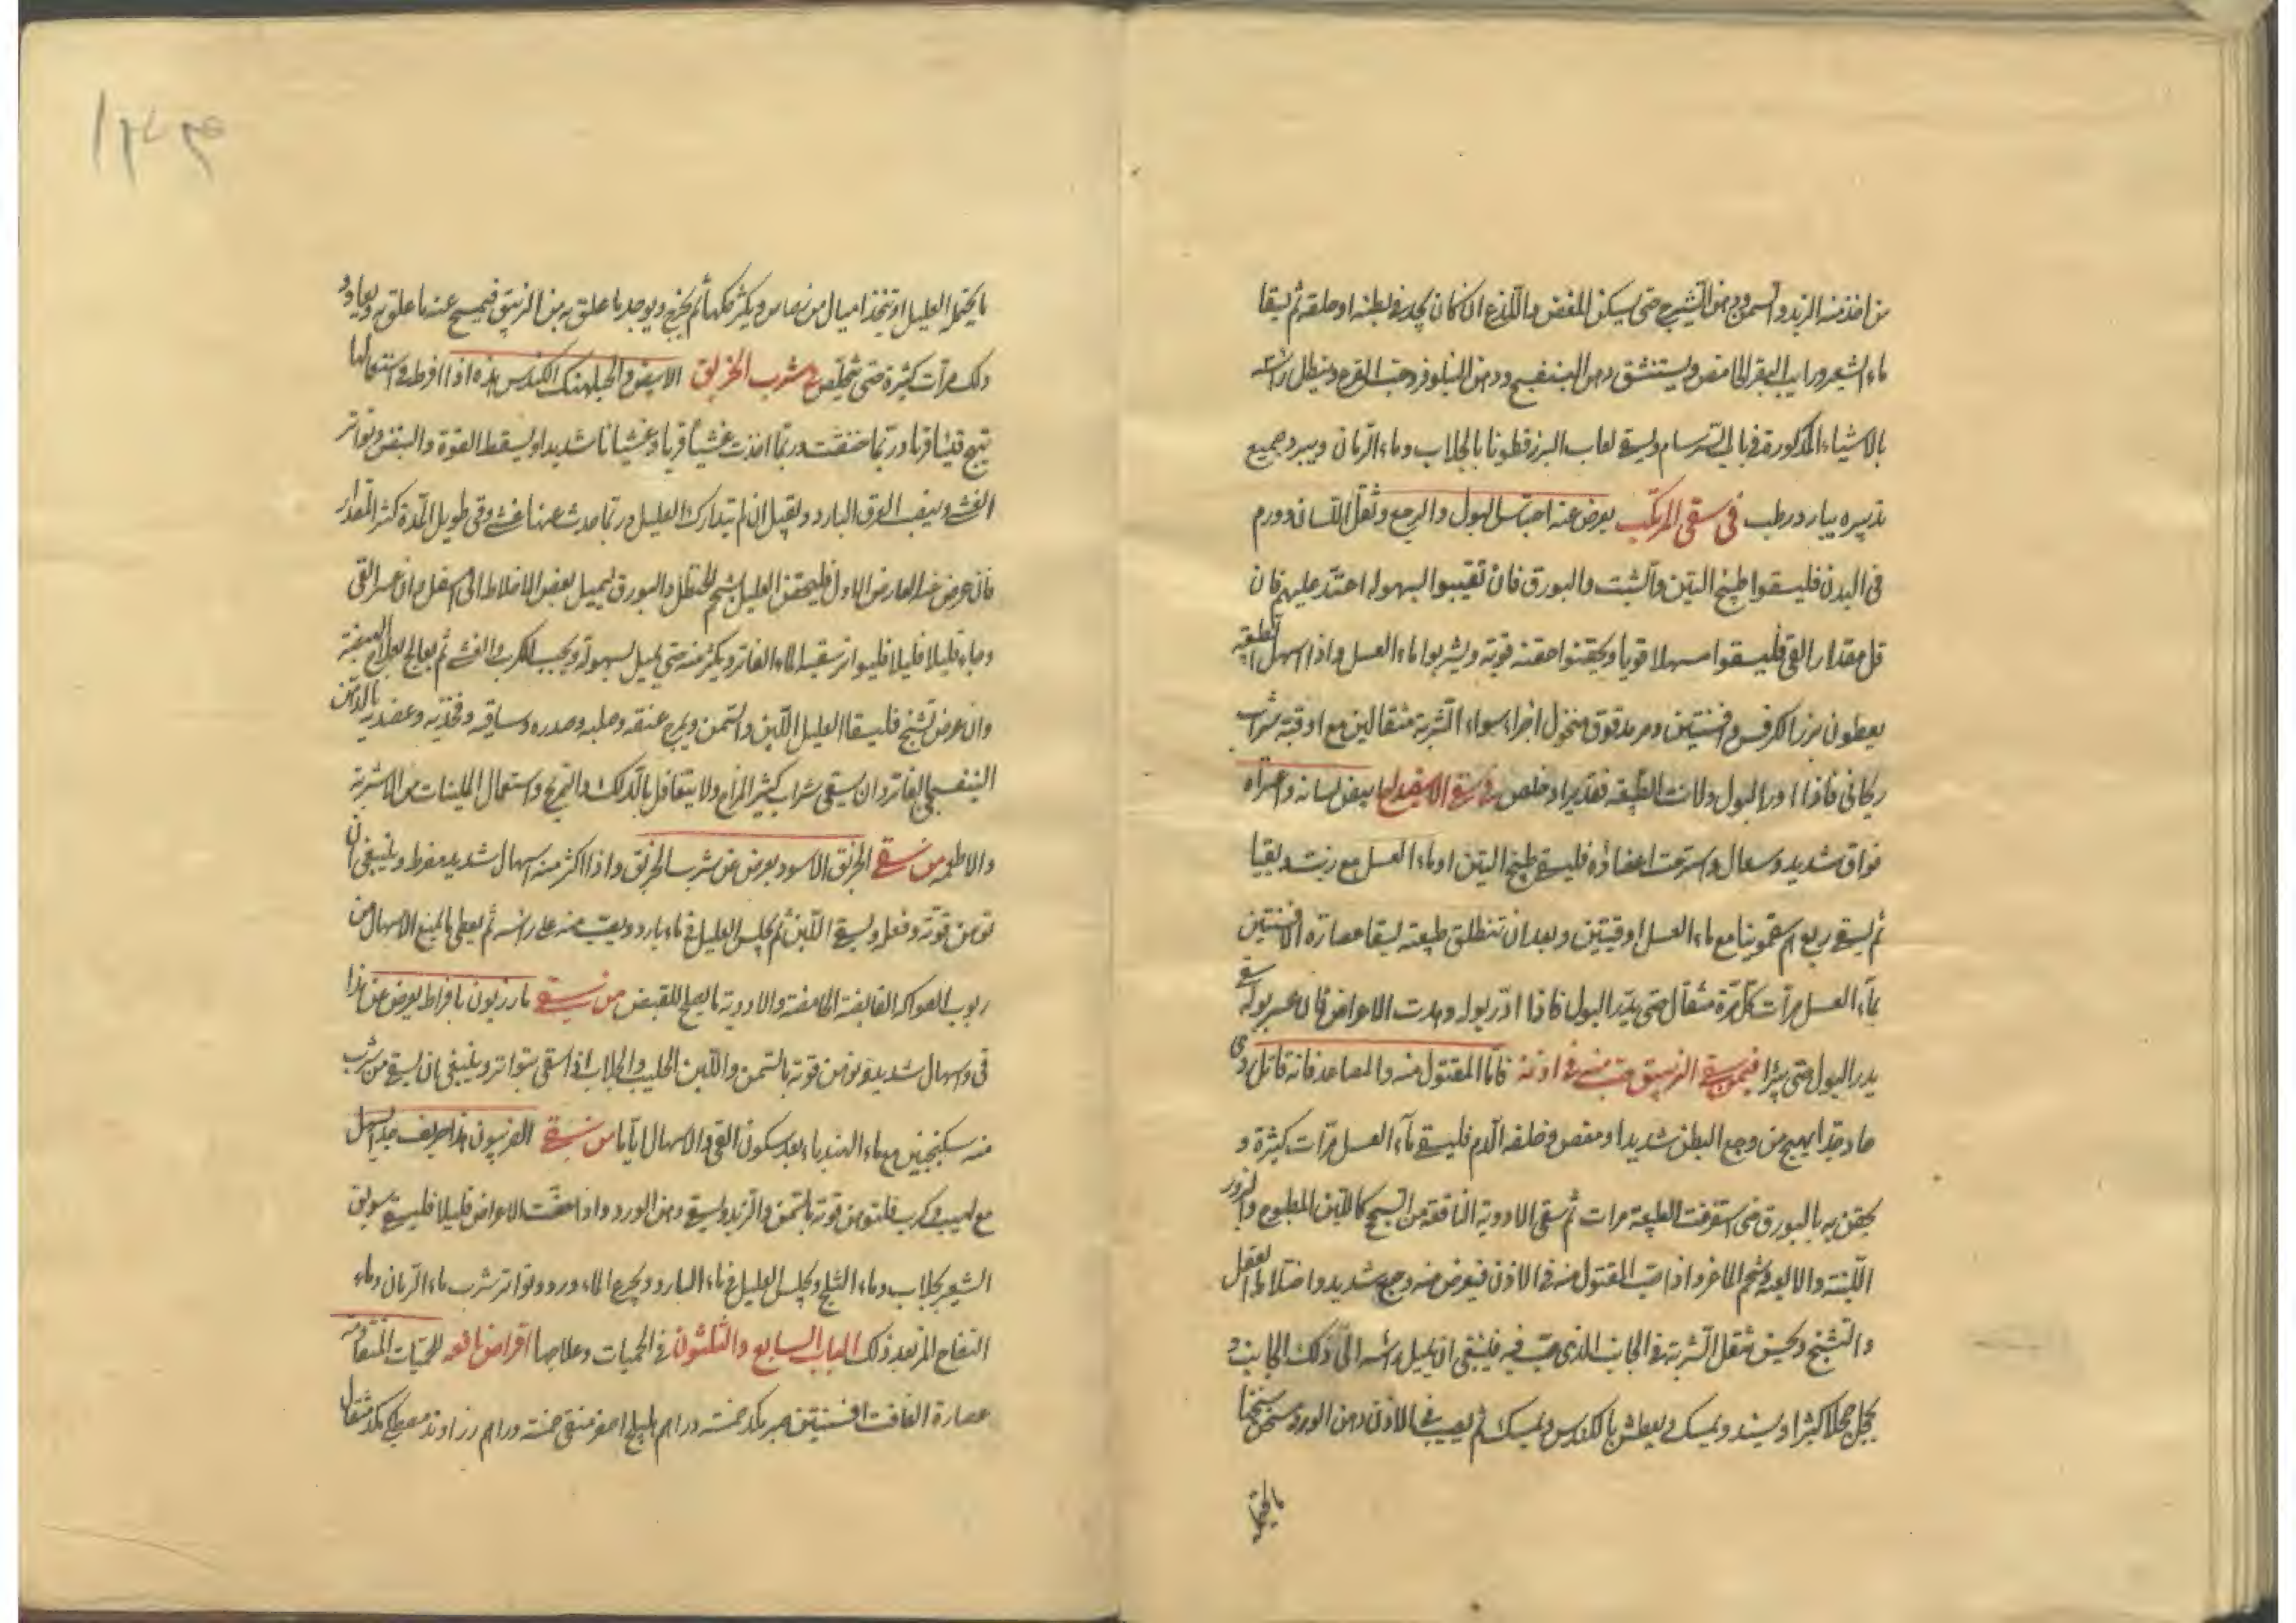 من اخذ منه الزبد والسمن ودهن الشيرج حتى يسكن المغص واللذع ان كان يجد في بطنه او حلقه ثم يسقا
ماء الشعير ورايب البقر الحامض ويستنشق دهن البنفسج ودهن النيلوفر وحب القرع وينطل راسه
بالاشياء المذكورة في باب السرسام ويسقى لعاب البزرقطونا بالجلاب وماء الرمان ويبرد جميع
تدبيره ببارد رطب في سقى المرتك يعرض عنه احتباس البول والرجع وثقل اللسان وورم
في البدن فليسقوا طبيخ التين والشبت والبورق فان تقيبوا بسهولة اعتد عليهم فان
قل مقدار القي فليسقوا مسهلا قويا ويحقنوا حقنه قوية ويشربوا ماء العسل واذا اسهل الطبيعه
يعطون بزر الكرفس وافسنتين ومر مدقوق منخول اجزاء سواء الشربة مثقالين مع اوقية شراب
ريحاني فاذا ادر البول ولانت الطبيعه فقد برا وخلص في سقى الاسفيداج يبيض لسانه واعتراه
فواق شديد وسعال واسترخت اعضاؤه فليسقى طبيخ التين او ماء العسل مع زيت ويقيا
ثم يسقى ربع درهم سقمونيا مع ماء العسل اوقيتين وبعد ان تنطلق طبيعته يسقا عصارة الافسنتين
بماء العسل مرات كل مرة مثقال حتى يدر البول فاذا ادر بوله وهدت الاعراض فان عسر بوله سقى
يدر البول حتى يبرا فيمن سقى الزيبق وصب منه في اذنه فاما المقتول منه والمصاعد فانه قاتل ردى
حاد جدا يهيج من وجع البطن شديدا ومغص وخلفه الدم فليسقى ماء العسل مرات كثيرة و
يحقن به بالبورق حتى استفرغت الطبيعة مرات ثم سقى الادوية النافعة من السحج كاللبن المطبوخ والبزور
اللينة والالعبه وشحم الماعز واذا صب المقتول منه في الاذن فيعرض منه وجع شديد واختلاط العقل
والتشنج ويحس بثقل الشربة في الجانب الذي صب فيه فينبغي ان يميل راسه الى ذلك الجانب و
يحجل حجلا كثيرا ويسند ويمسك ويعطش بالكندس ويمسك ثم يصب في الاذن دهن الورد مسخن سخنا
ما يحتمل
ما يحتمل العليل او يتخذ اميال من رصاص ويكثر حكها ثم يخرج ويوجد ما علق به من الزيبق فيمسح عنه ما علق به ويعاود
ذلك مرات كثيرة حتى تتخلص في شرب الخربق الابيض والجبلهنك الكندس هذه اذا افرط في استعمالها
تهيج قيئا قويا وربما خنقت وربما احدث غشيا قويا وغشيانا شديدا ويسقط القوة والنبض وتواتر
الغشى ويتبعه العرق البارد ويقتل ان لم يتدارك العليل وربما حدث عنها غشى وقى طويل المدة كثير المقدار
فان عرض هذا العارض الاول فليحقن العليل بشحم الحنظل والبورق ليميل بعض الاخلاط الى اسفل وان عسر القى
وجاء قليلا قليلا فليواتر سقيه الماء الفاتر ويكثر منه حتى يسيل بسهولة ويجيب الكرب والغشى ثم يعالج بعلاج الهيضة
وان عرض تشنج فليسقا العليل اللبن والسمن ويمرخ عنقه وصلبه وصدره وساقيه وفخذيه وعضديه بالدهن
البنفسجى الفاتر وان يسقى شراب كثير المزاج ولا يتغافل بالدلك والتمريخ واستعمال الملينات من الاشربة
والاطعمه من سقى الخربق الاسود يعرض عن شرب الخربق واذا اكثر منه اسهال شديد مفرط وينبغي ان
توهن قوته وفعله ويسقى اللبن ثم يجلس العليل في ماء بارد ويصب منه على راسه ثم يعطى ما يمنع الاسهال من
ربوب الفواكه القابضة الحامضه والادوية ما يصلح للقبض من سقى مازريون بافراط يعرض عن هذا
قى واسهال شديد وتوهن قوته بالسمن واللبن الحليب والجلاب اذا سقى بتواتر وينبغي ان يسقى من شرب
منه سكنجبين مع ماء الهندباء بعد سكون القى والاسهال اياما من سقى الفربيون هذا حريف جدا يسهل
مع لهيب وكرب فلتوهن قوته بالسمن والزبد ويسقى دهن الورد واذا خفت الاعراض قليلا فليسقى سويق
الشعير بجلاب وماء الثلج ويجلس العليل في ماء البارد ويجرع الماء ورد وتواتر شرب ماء الرمان وماء
التفاح المز بعد ذلك الباب السابع والثلثون في الحميات وعلاجها اقراص نافعه للحميات المتقادمه
عصارة الغافت افسنتين صبر بكد خمسة دراهم هليلج اصفر منقى خمسة دراهم زراوند مصطكى بكد مثقال